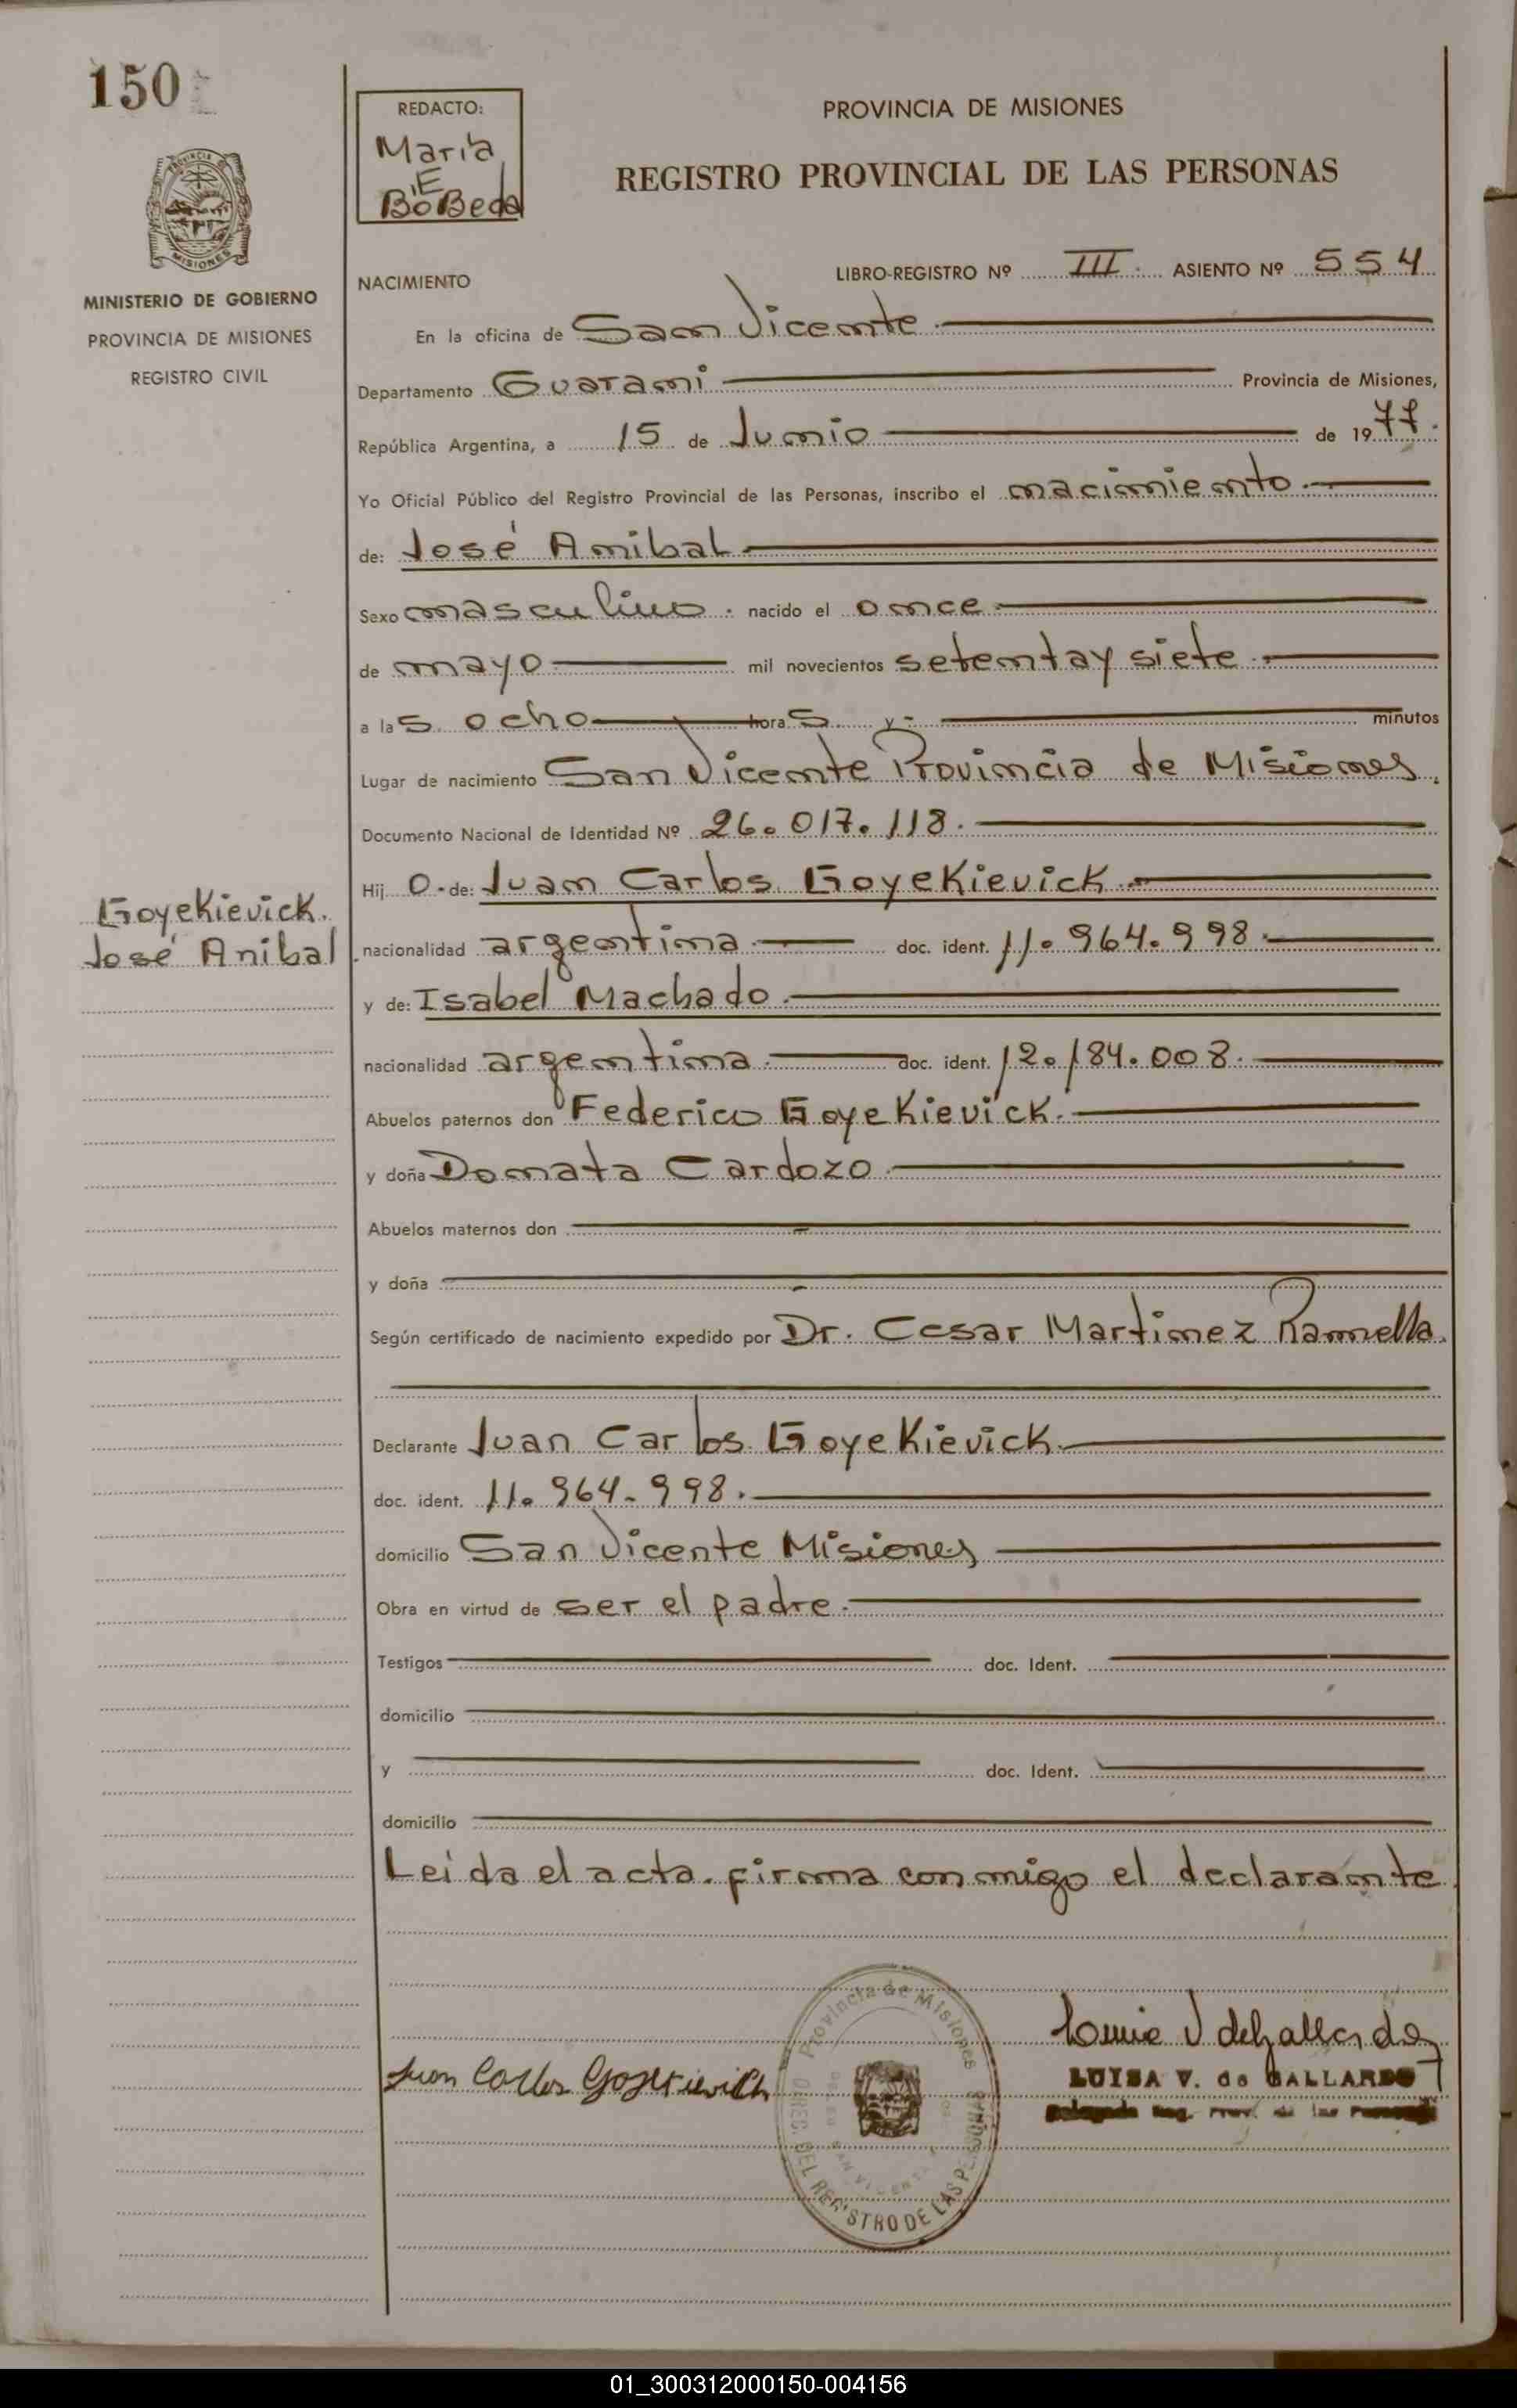 150
PROVINCIA DE
MISIONES
MINISTERIO DE GOBIERNO
PROVINCIA DE MISIONES
REGISTRO CIVIL
REDACTO:
Maria
E
BoBeda
PROVINCIA DE MISIONES
REGISTRO PROVINCIAL DE LAS PERSONAS
NACIMIENTO
LIBRO-REGISTRO Nº III. ASIENTO Nº 554
En la oficina de San Vicente
Departamento Guarani Provincia de Misiones,
República Argentina, a 15 de Junio de 1977.
Yo Oficial Público del Registro Provincial de las Personas, inscribo el nacimiento.
de: José Anibal
Sexo masculino. nacido el once
de mayo mil novecientos setenta y siete.
a las ocho horas y - minutos
Lugar de nacimiento San Vicente Provincia de Misiones.
Documento Nacional de Identidad Nº 26.017.118.
Hijo.de: Juan Carlos Goyekievick.
Goyekievick.
José Anibal
nacionalidad argentina. doc. ident. 11.964.998.
y de: Isabel Machado.
nacionalidad argentina. doc. ident. 12.184.008.
Abuelos paternos don Federico Goyekievick.
y doña Donata Cardozo.
Abuelos maternos don
y doña
Según certificado de nacimiento expedido por Dr. Cesar Martinez Rannella.
Declarante Juan Carlos Goyekievick.
doc. ident. 11.964.998.
domicilio San Vicente Misiones
Obra en virtud de ser el padre.
Testigos doc. Ident.
domicilio
y doc. Ident.
domicilio
Leida el acta. firma conmigo el declarante.
Provincia de Misiones
DIREC. DEL REGISTRO DE LAS PERSONAS
SAN VICENTE
Juan Carlos Goyekievich
LUISA V. de GALLARDO
Delegada Reg. Prov. de las Personas
01_300312000150-004156